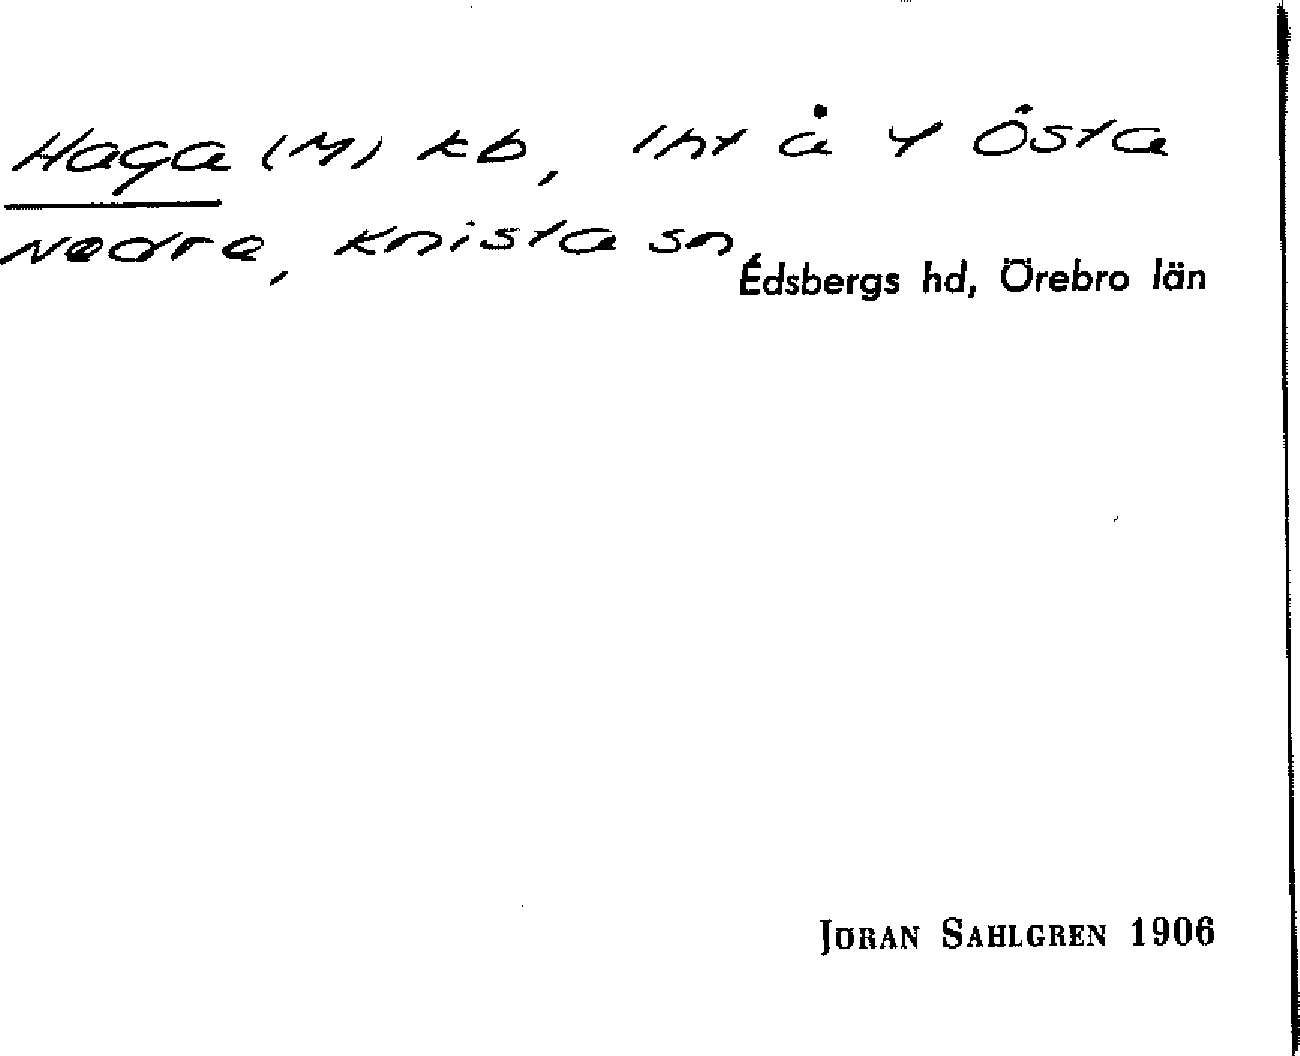 Haga (M) kb, lht å Y Östa
Nedre, Knista sn,
Edsbergs hd, Örebro län
JÖRAN SAHLGREN 1906